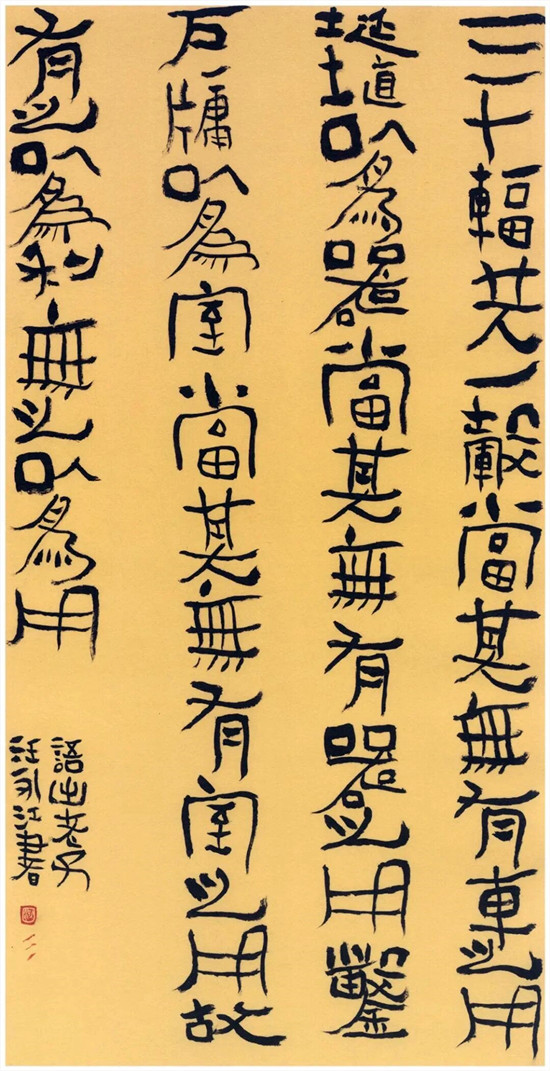 三十輻共一轂當其無有車之用
埏埴以為器當其無有器之用鑿
戶牖以為室當其無有室之用故
有之以為利無之以為用
語出老子
汪永江書